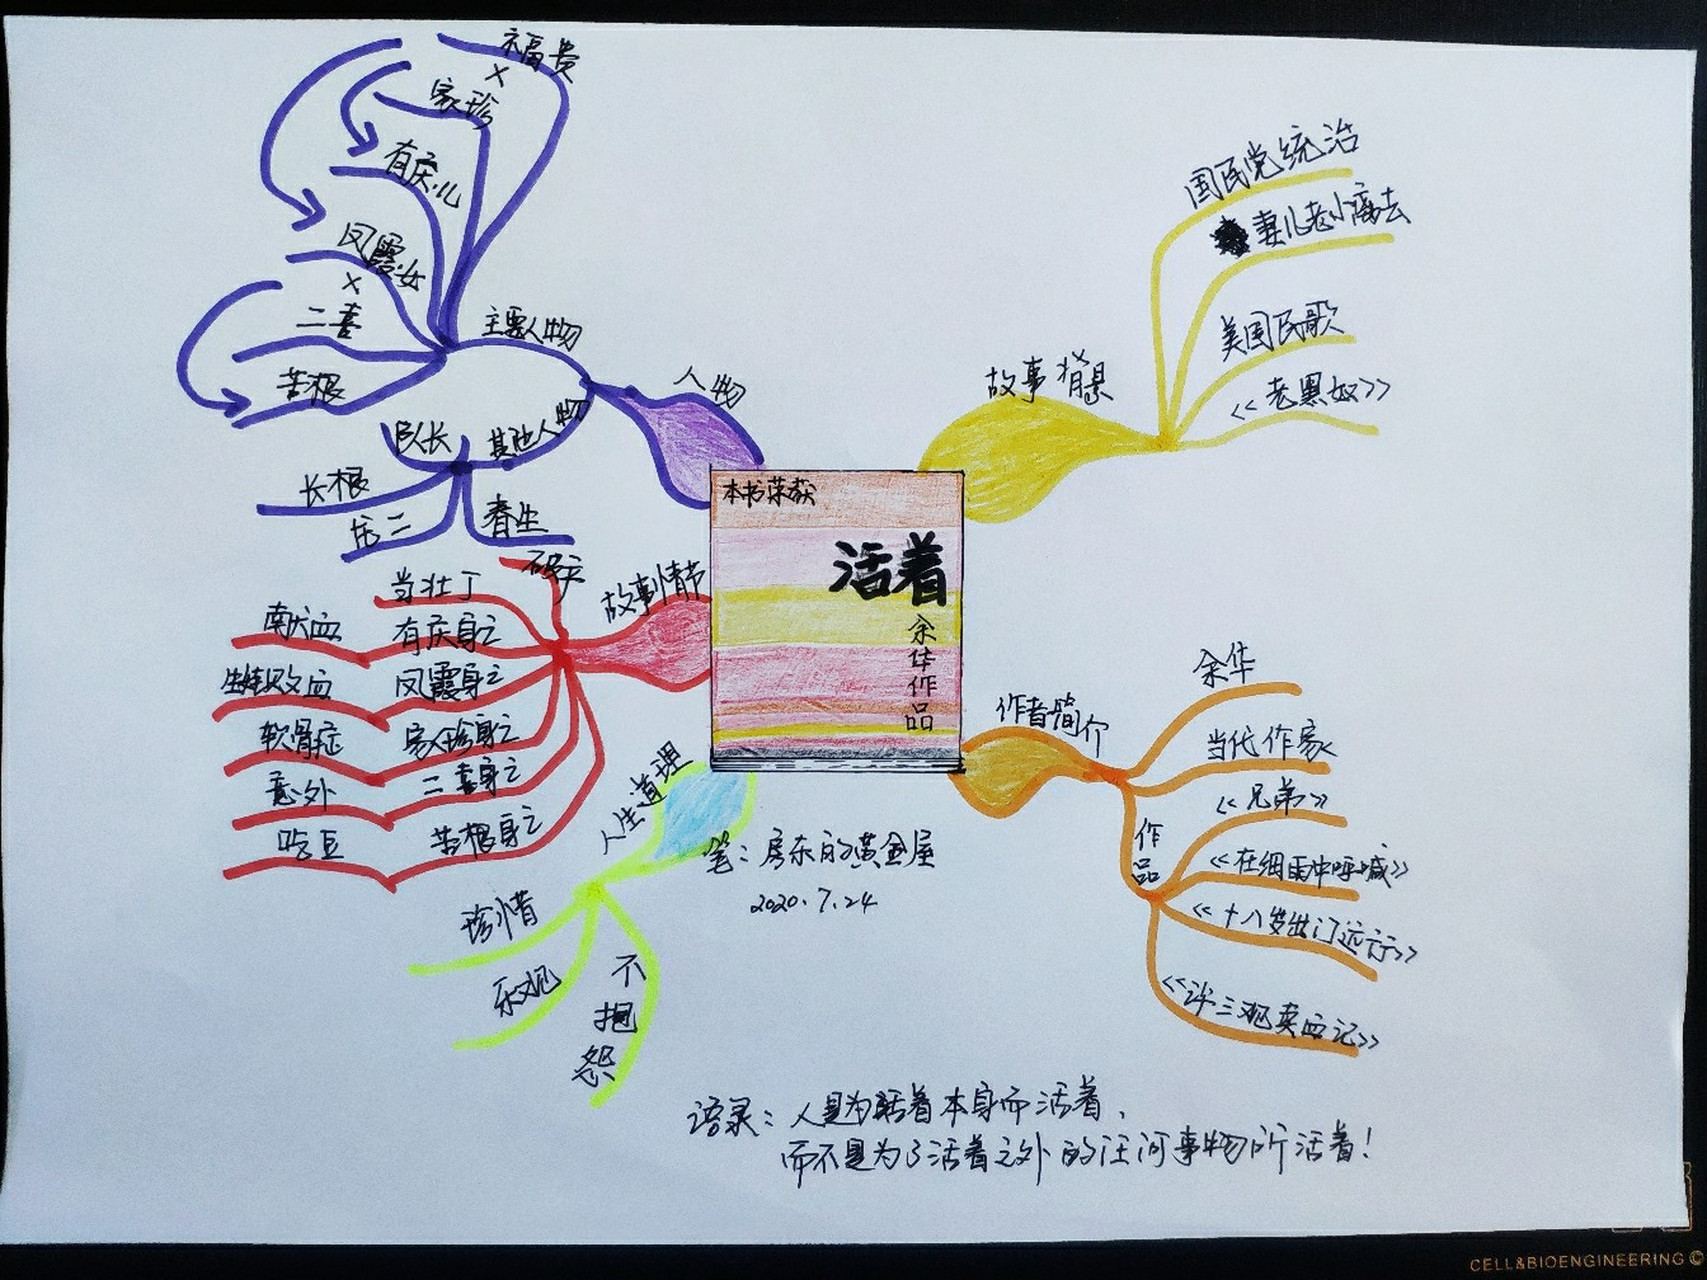 福贵
×
家珍
有庆儿
凤霞女
×
二喜
苦根
主要人物
人物
其他人物
队长
长根
春生
故事背景
国民党统治
妻儿老小离去
美国民歌
<<老黑奴>>
本书荣获
活着
余华作品
故事情节
破产
当壮丁
有庆身亡
献血
凤霞身亡
家珍身亡
软骨症
二喜身亡
意外
苦根身亡
吃豆
人生道理
珍惜
乐观
不抱怨
作者简介
余华
当代作家
作品
<<兄弟>>
<<在细雨中呼喊>>
<<十八岁出门远行>>
<<许三观卖血记>>
笔：房东的黄金屋
2020.7.24
语录：人是为活着本身而活着，
而不是为了活着之外的任何事物所活着！
CELL&BIOENGINEERING ©